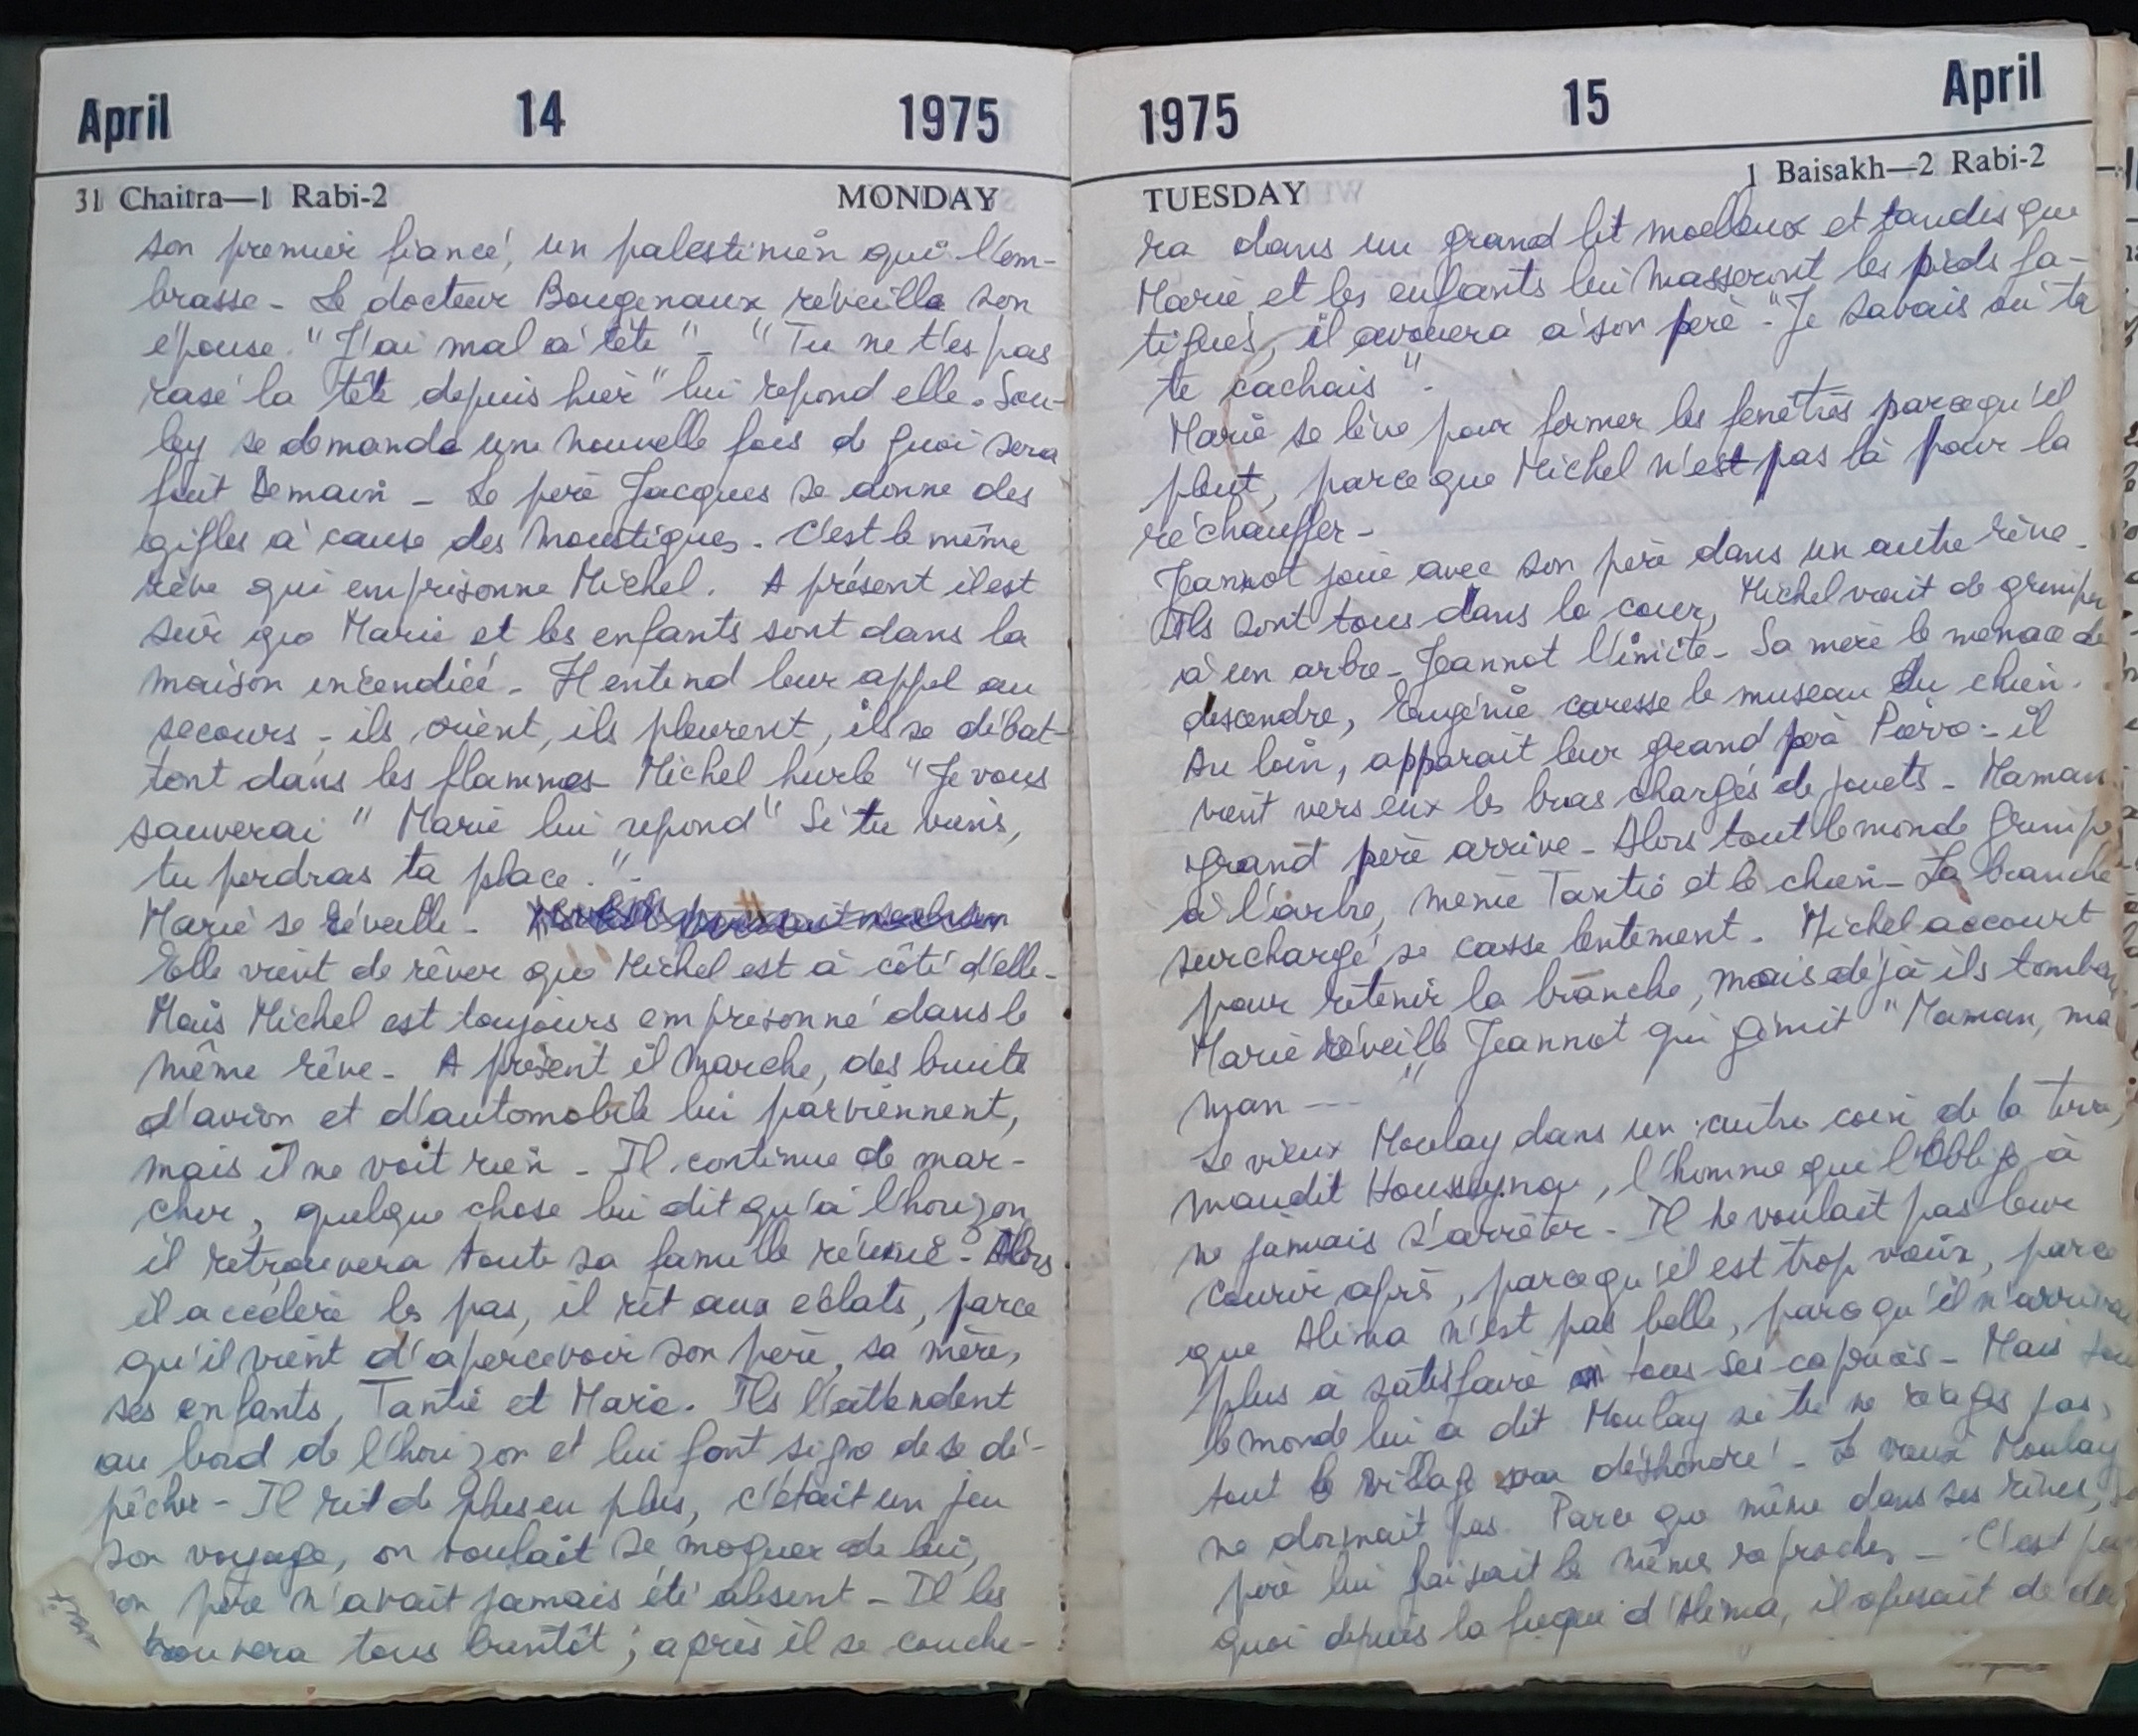 April 14 1975
31 Chaitra—1 Rabi-2 MONDAY
son premier fiancé, un palestinien qui l'em-
brasse - Le docteur Bougenaux réveilla son
épouse. "J'ai mal à tête" - "Tu ne t'es pas
rasé la tête depuis hier" lui répond elle. Sou-
ley se demanda une nouvelle fois de quoi sera
fait Demain - Le père Jacques se donne des
gifles à cause des moustiques. C'est le même
rêve qui emprisonne Michel. A présent il est
sûr que Marie et les enfants sont dans la
maison incendiée - Il entend leur appel au
secours - ils crient, ils pleurent, ils se débat-
tent dans les flammes Michel hurle "Je vous
sauverai" Marie lui repond "Si tu viens,
tu perdras ta place." -
Marie se réveille -
Elle vient de rêver que Michel est à côté d'elle -
Mais Michel est toujours emprisonné dans le
même rêve - A présent il marche, des bruits
d'avion et d'automobile lui parviennent,
mais il ne voit rien - Il continue de mar-
cher, quelque chose lui dit qu'à l'horizon
il retrouvera toute sa famille réunie - Alors
il accélère les pas, il rit aux éclats, parce
qu'il vient d'apercevoir son père, sa mère,
ses enfants, Tantie et Marie. Ils l'attendent
au bord de l'horizon et lui font signe de se dé-
pêcher - Il rit de plus en plus, c'était un jeu
son voyage, on voulait se moquer de lui,
son père n'avait jamais été absent - Il les
trouvera tous bientôt ; après il se couche-
1975 15 April
TUESDAY 1 Baisakh—2 Rabi-2
ra dans un grand lit moelleux et tandis que
Marie et les enfants lui masseront les pieds fa-
tigués, il avouera à son père - "Je savais où tu
te cachais".
Marie se lève pour fermer les fenêtres parcequ'il
pleut, parceque Michel n'est pas là pour la
réchauffer -
Jeannot joue avec son père dans un autre rêve -
Ils sont tous dans la cour, Michel vient de grimper
à un arbre - Jeannot l'imite - Sa mère le menace de
descendre, Eugénie caresse le museau du chien.
Au loin, apparait leur grand père Pierre : il
vient vers eux les bras chargés de jouets - Maman
grand père arrive - Alors tout le monde grimpe
à l'arbre, même Tantie et le chien - La branche
surchargé se casse lentement. Michel accourt
pour retenir la branche, mais déjà ils tombent
Marie réveille Jeannot qui gémit "Maman, ma
man --- "
Le vieux Moulay dans un autre coin de la terre,
maudit Housseynou, l'homme qui l'oblige à
ne jamais s'arrêter - Il ne voulait pas leur
courir après, parcequ'il est trop vieux, parce
que Alima n'est pas belle, parcequ'il n'arrivait
plus à satisfaire tous ses caprices - Mais tout
le monde lui a dit Moulay si tu ne réagis pas,
tout le village sera déshonoré - Le vieux Moulay
ne dormait pas. Parce que même dans ses rêves, son
père lui faisait les mêmes reproches - C'est pour
quoi depuis la fugue d'Alima, il refusait de